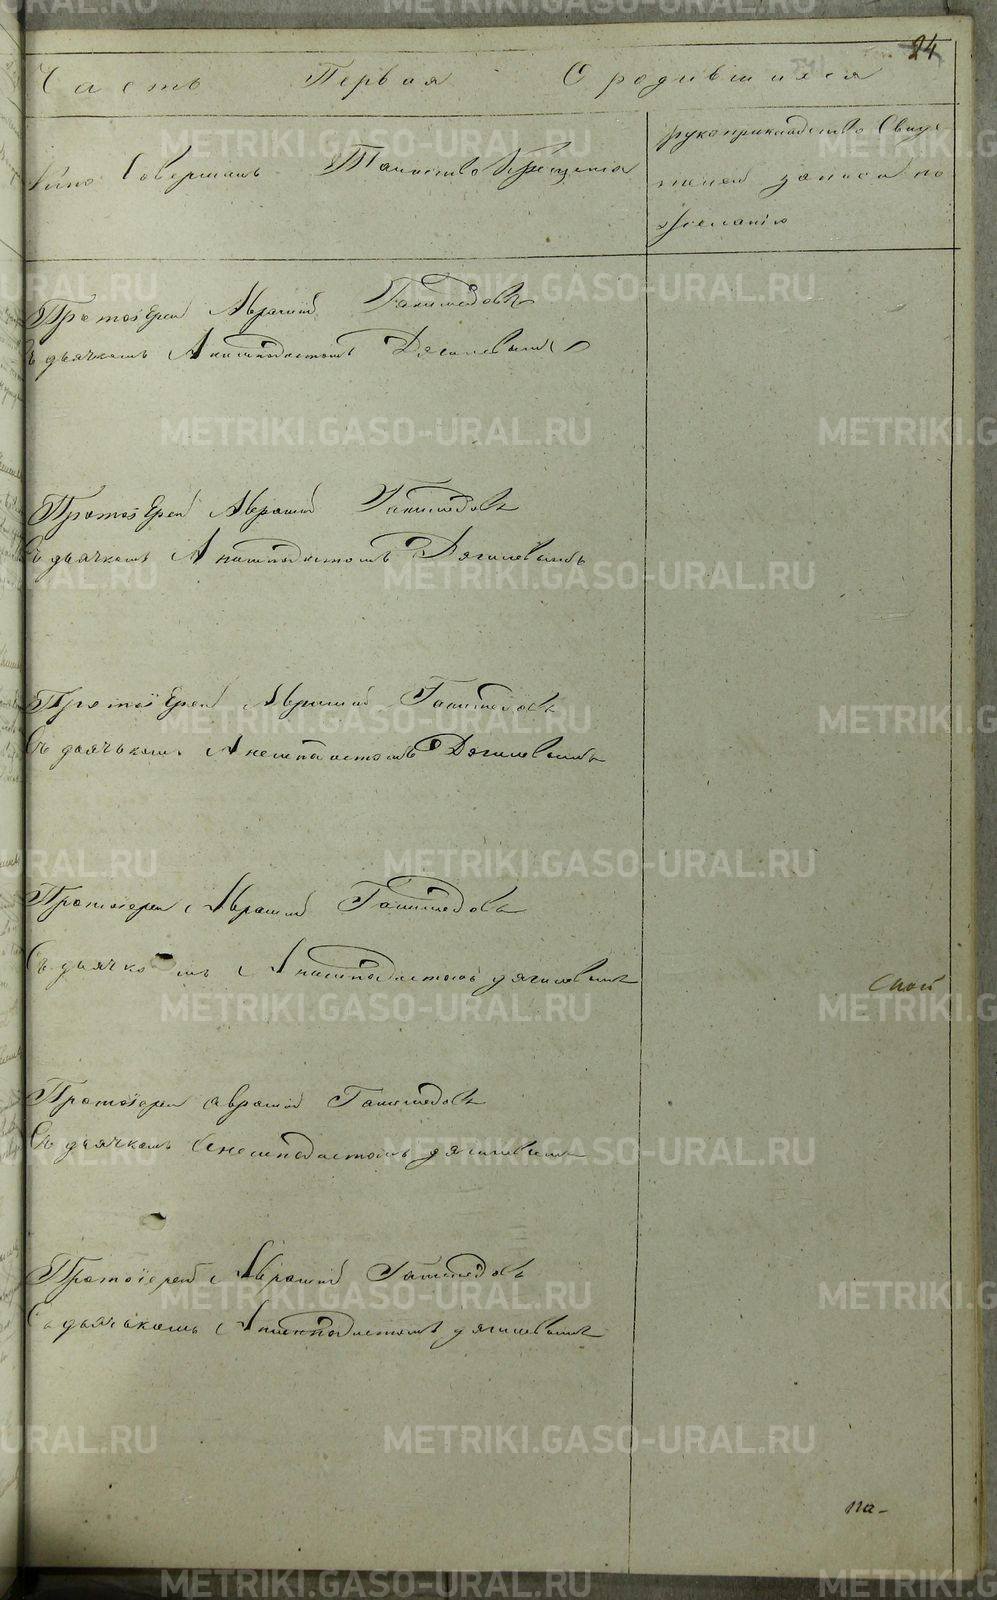 24
Часть Первая О родившихся
Кто Совершалъ Таинство Крещенія
рукоприкладство Свиде
телей записи по
желанію
Протоіерей Аврамій Ганимедовъ
Съ дьячкомъ Анемподистомъ Дягилевымъ
Протоіерей Аврамій Ганимедовъ
Съ дьячкомъ Анемподистомъ Дягилевымъ
Протоіерей Аврамій Ганимедовъ
Съ дьячькомъ Анемподистомъ Дягилевымъ
Протоіерей Аврамій Ганимедовъ
Съ дьячкомъ Анемподистомъ дягилевымъ
Протоіерей аврамій Ганимедовъ
Съ дьячкомъ Анемподистомъ дягилевымъ
Протоіерей Аврамій Ганимедовъ
Съ дьячькомъ Анемподистомъ дягилевымъ
на-
METRIKI.GASO-URAL.RU